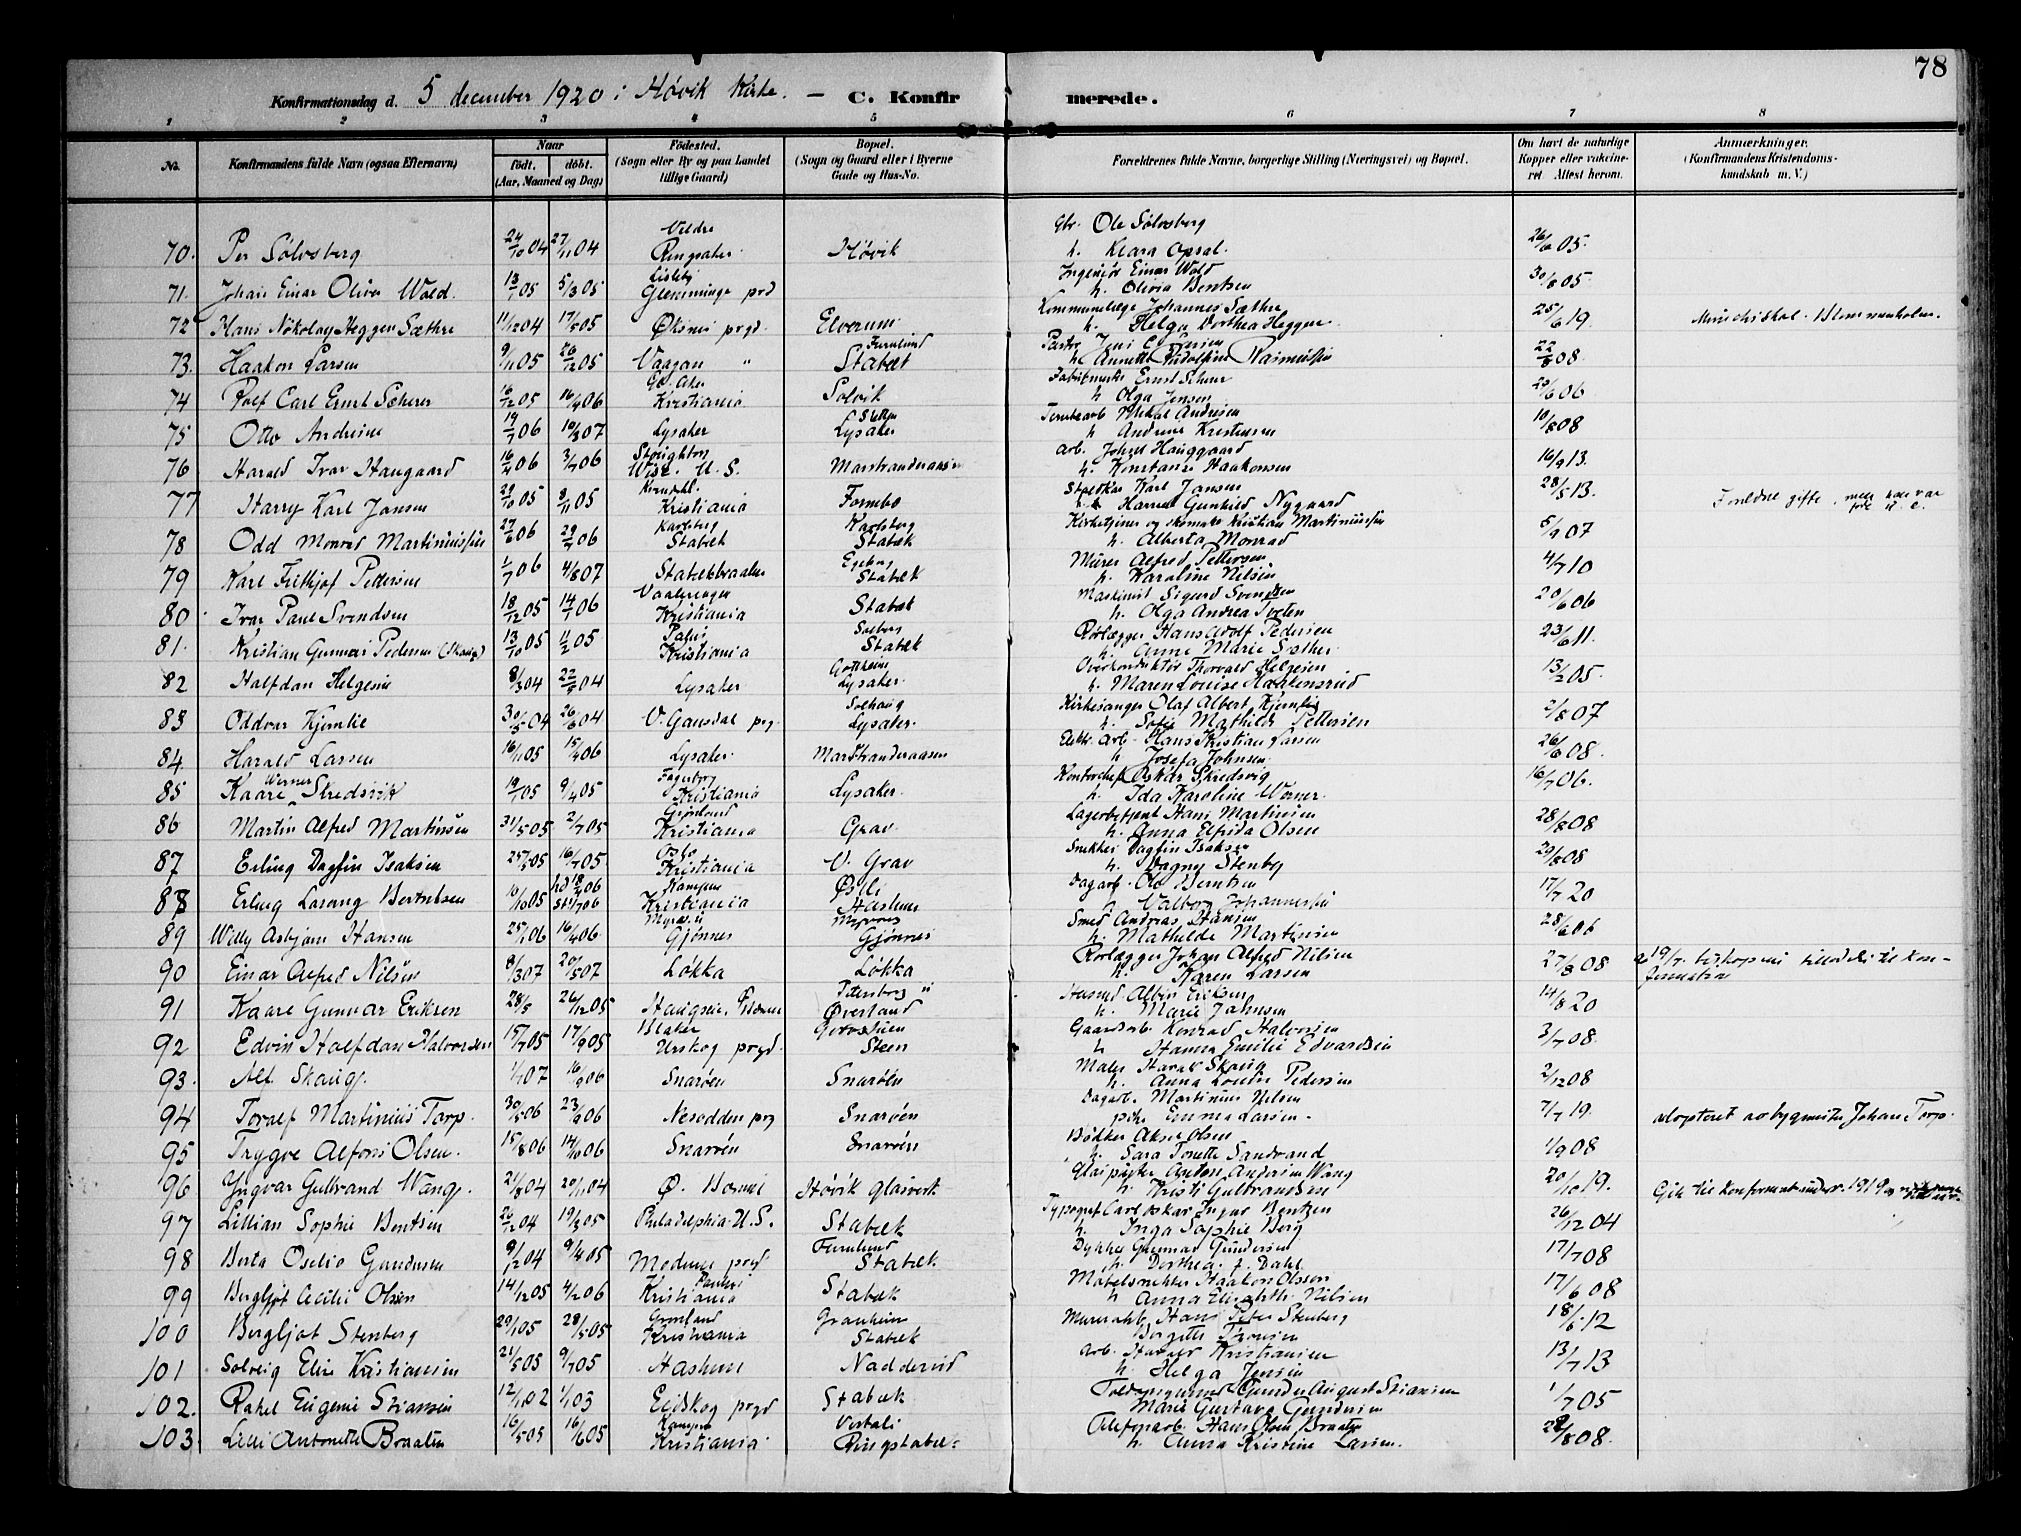 78
Konfirmationsdag d. 5 december 1920 i Høvik Kirke. — C. Konfirmerede.
1 2 3 4 5 6 7 8
No. Konfirmandens fulde Navn (ogsaa Efternavn) Naar født. døbt. (Aar, Maaned og Dag) Fødested. (Sogn eller By og paa Landet tillige Gaard) Bopæl. (Sogn og Gaard eller i Byerne Gade og Hus-No. Forældrenes fulde Navne, borgerlige Stilling (Næringsvei) og Bopæl. Om havt de naturlige Kopper eller vakcineret Attest herom. Anmærkninger. (Konfirmandens Kristendomskundskab m. V.)
70. Per Sølvsberg 24/10 04 27/11 04 Veldre Ringsaker Høvik Gbr. Ole Sølvsberg h. Klara Opsal 26/6 05.
71. Johan Einar Oliver Wold. 13/1 05 5/3 05 Lisleby Glemminge prd Ingeniør Einar Wold h. Olivia Bentsen 30/8 05.
72 Hans Nikolay Heggen Sæthre 11/12 04 17/5 05 Øksnes prgd. Elverum Johannes Sæthre h. Helga Dorthea Heggen 25/6 19.
73. Haakon Larsen 9/11 05 26/12 05 Vaagan " Furulund Stabæk Pastor Jens C. Larsen h. Annette Rudolfine Rasmussen 22/8 08
74 Rolf Carl Ernst Scherer 16/12 05 16/9 06 Kristiania Solvik Ernst Scherer h. Olga Jensen
75 Otto Andresen 19/7 06 10/3 07 Lysaker Lysaker Mikal Andresen h. Andrine Kristensen 10/8 08
76 Harald Ivar Haugaard 16/4 06 3/7 06 Stoughton Wisc. U. S. Marstranderaasen arb. Johan Hauggaard h. Konstanse Haakonsen 16/9 13.
77 Harry Karl Jansen 29/10 05 8/11 05 Kristiania Fornebo Karl Jansen h. Hanna Gunhild Nygaard 28/5 13. Foreldre gifte, men han var
78 Odd Monrad Martinussen 27/6 06 29/7 06 Karlsberg Stabæk Karlsberg Stabæk Kirketjener og skomaker Kristian Martinussen h. Alberta Monrad 5/9 07
79 Karl Frithjof Pettersen 1/7 06 4/8 07 Stabækbraaten Stabæk Murer Alfred Pettersen h. Karoline Nilsen 4/7 10
80 Ivar Paul Svendsen 18/12 05 14/1 06 Vaalerengen Kristiania Stabæk Maskinist Sigurd Svendsen h. Olga Andrea Tveten 20/6 06
81. Kristian Gunnar Pedersen (Skaug) 13/10 05 11/2 05 Kristiania Solberg Stabæk Rørlægger Hans Adolf Pedersen h. Anne Marie Sæther 23/6 11.
82 Halfdan Helgesen 8/3 04 22/5 04 Lysaker Lysaker. Overkonduktør Thorvald Helgesen h. Maren Louise Haakensrud 13/2 05.
83 Oddvar Kjernlie 30/5 04 26/6 04 V. Gausdal prg. Solhaug Lysaker. Kirkesanger Olaf Albert Kjernlie h. Sofie Mathilde Pettersen 2/8 07
84 Harald Larsen 16/11 05 15/4 06 Lysaker. Marstranderaasen Elektr. arb. Hans Kristian Larsen h. Josefa Johnsen 26/6 08.
85 Kaare Werner Skredsvik 19/1 05 9/4 05 Fagerborg Kristiania Lysaker. Kontorchef Oskar Skredsvig h. Ida Karoline Werner. 16/7 06.
86 Martin Alfred Martinsen 31/5 05 2/7 05 Grønland Kristiania Grav. Lagerbetjent Hans Martinsen h. Anna Elfrida Olsen 28/8 08
87 Erling Dagfin Isaksen 25/5 05 16/7 05. Oslo Kristiania V. Grav Snekker Dagfin Isaksen h. Dagny Stenby 29/8 08
88 Erling Berntsen /10 05 hd 18/ 06 St. 1/7 06 Kampen Kristiania Haslum Dagarb. Ole Berntsen h. Valborg Johannessen 17/7 20
89 Willy Asbjørn Hansen 25/1 06 16/4 06. Gjønnes Gjønnes Smed Andreas Hansen h. Mathilde Martinsen 28/6 06
90 Einar Alfred Nilsen 8/3 07 20/5 07 Løkka Løkka Rørlægger Johan Alfred Nilsen h. Karen Larsen 27/8 08 19/7. biskopens tilladelse til konfirmation
91 Kaare Gunnar Eriksen 28/8 26/12 05 Øverland Albin Eriksen h. Marie Johnsen 14/8 20
92 Edvin Halfdan Halvorsen 15/7 05 17/9 05 Blaker Urskog prgd. Steen Gaardsarb. Konrad Halvorsen h Hanna Emilie Edvardsen 3/7 08.
93. Alf Skaug. 1/1 07 16/9 06 Snarøen Snarøen Maler Harald Skaug h. Anna Lovise Pedersen 2/12 08
94 Toralf Martinius Torp. 30/5 06 23/9 06 Nesodden prg Snarøen Dagarb. Martinius Nilsen Emma Larsen. 7/7 19. adopteret av bygmester Johan Torp.
95 Trygve Alfons Olsen. 15/8 06 14/10 06 Snarøen Snarøen Bødker Aksel Olsen h. Sara Tonette Sandrand 1/9 08
96 Yngvar Gulbrand Wang. 21/8 04 20/11 04 Ø. Høvik glasverk Glaspuster Anton Andersen Wang h. Kristi Gulbrandsen 20/10 19. Gik til konfirmat.
97 Lillian Sophie Bentsen 26/12 04 19/2 05 Philadelphia U.S. Stabæk Typograf Carl Oskar Ingvar Bentzen h. Inga Sophie Berg 26/12 04
98 Berta Oselio Gundersen 9/12 04 9/4 05 Modums prgd Furulund Stabæk Dykker Gunnar Gundersen h. Dorthea f. Dahl 17/7 08
99 Bergljot Cecilie Olsen 14/12 05 4/2 06 Paulus Kristiania Stabæk Møbelsnekker Haakon Olssen h Anna Elisabeth Nilsen 17/6 08
100 Bergljot Stenberg 29/1 05 28/5 05 Grønland Kristiania Granheim Stabæk Hans Peter Stenberg Birgitte Tronsen 18/6 12
101 Solveig Elise Kristiansen 21/5 05 9/7 05 Haslum Nadderud arb. Harald Kristiansen h. Helga Jensen 13/7 13
102. Rakel Eugenie Stiansen 12/11 02 1/1 03 Eidskog prgd Stabæk Gunder August Stiansen Marie Gustava Gundersen 1/7 05
103. Lilli Antonette Braaten 16/5 05 16/6 05 Kampen Kristiania Vestali Ringstabæk Hans Olsen Braaten h. Anna Kristine Larsen. 22/8 08.